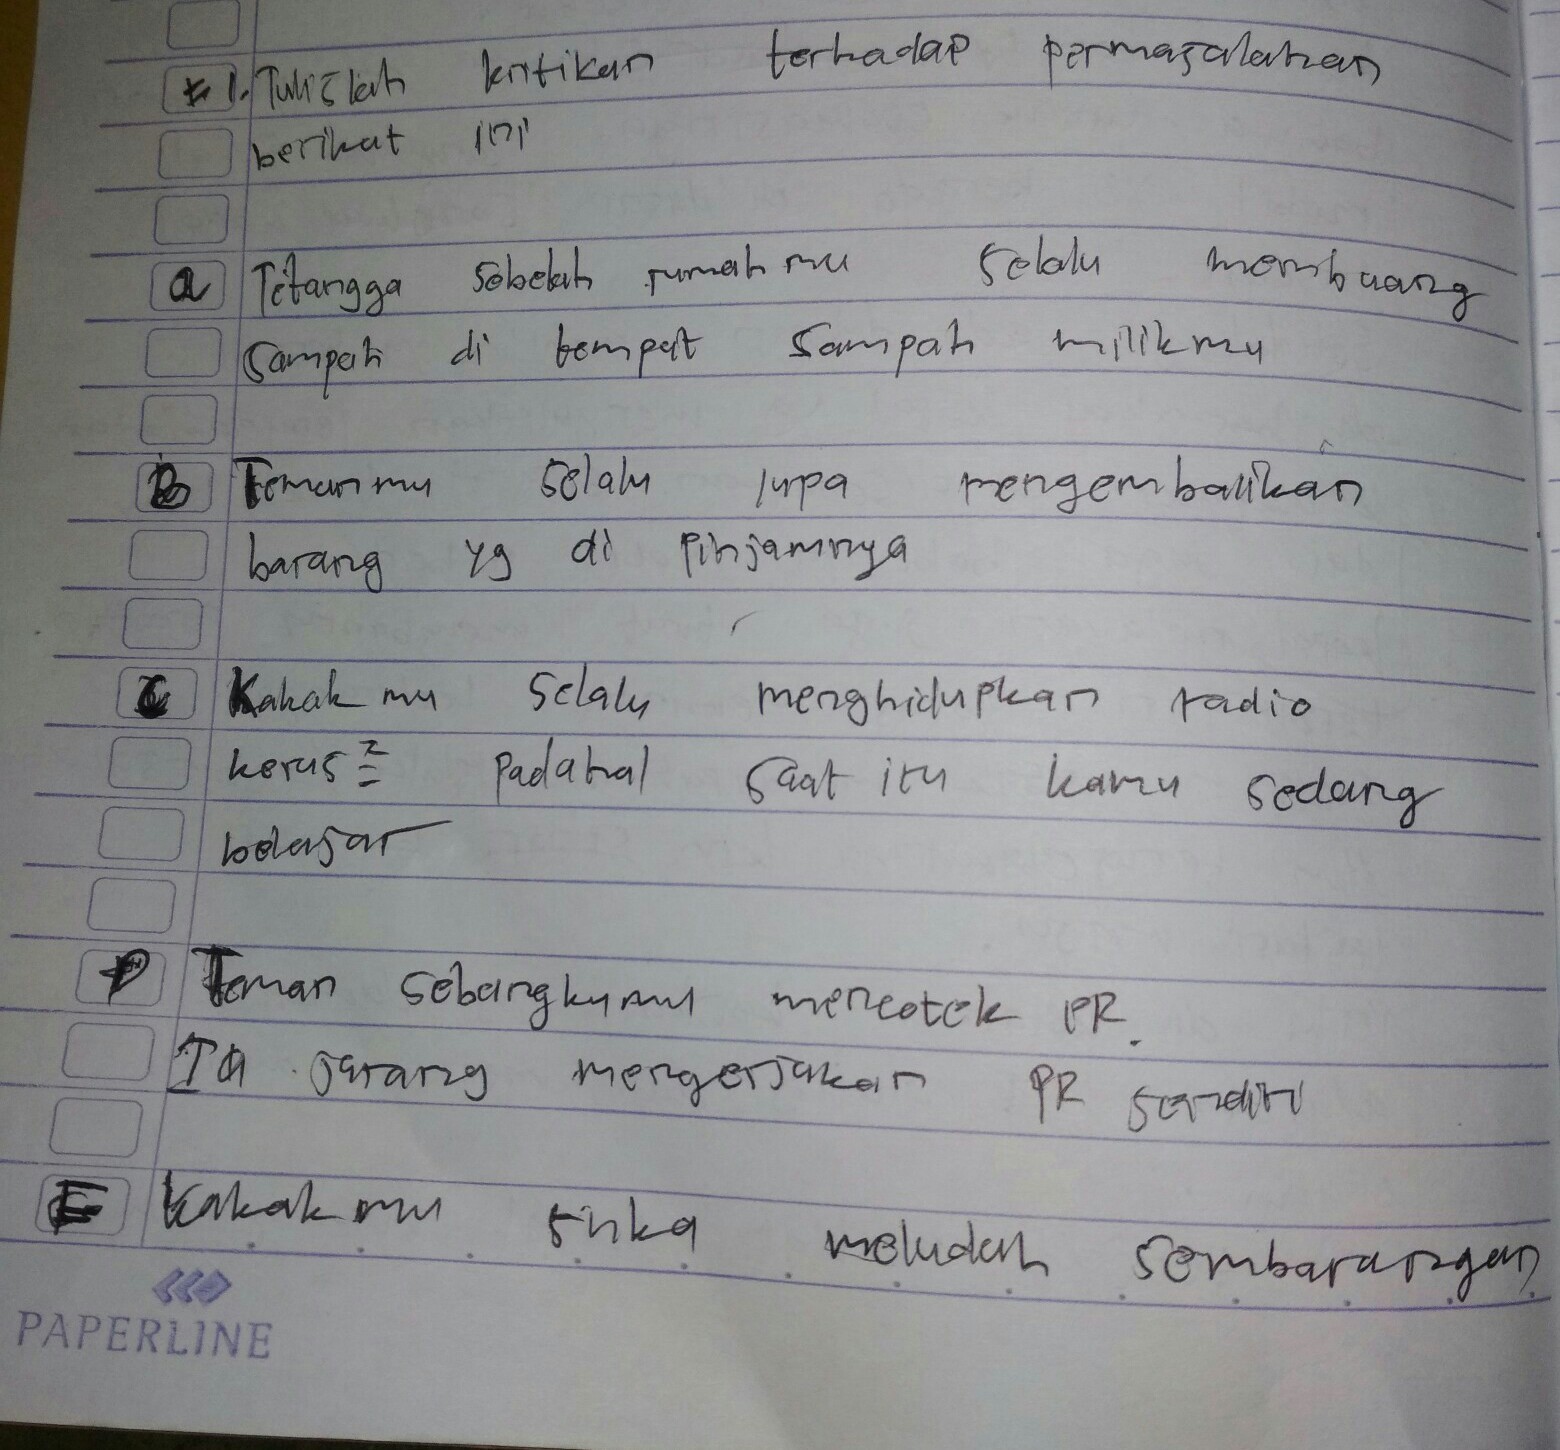 1. Tulislah kritikan terhadap permasalahan
berikut ini
a Tetangga sebelah rumah mu selalu membuang
sampah di tempat sampah milikmu
b Temanmu selalu lupa mengembalikan
barang yg di pinjamnya
c Kakak mu selalu menghidupkan radio
keras2 padahal saat itu kamu sedang
belajar
D Teman sebangkumu mencotek PR.
Ia jarang mengerjakan PR sendiri
E Kakak mu suka meludah sembarangan
PAPERLINE